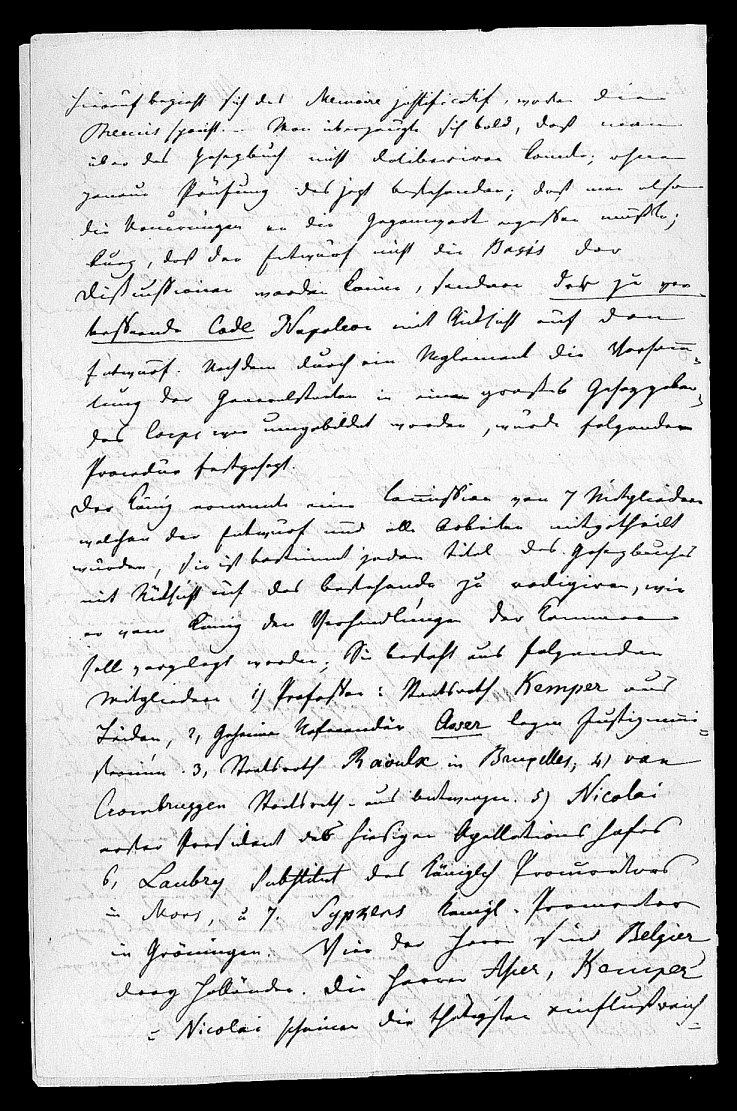 hierauf bezieht sich das Memoire justificatif, worten die
Precis spricht. – Man überzeugte sich bald, daß man
über das Gesetzbuch nicht deliberiren konnte, ohne
genaue Prüfung des jetzt bestehenden; daß man also
die Neuerungen an die Gegenwart anpassen mußte;
kurz, daß der Entwurf nicht die Basis der
Dißcussionen werden könne, sondern das zu ver-
bessernde Code Napoleon mit Rüksicht auf den
Entwurf. Nachdem durch ein Reglement die Versamm-
lung der Generalstaaten in einen großes Gesezgeben-
des Corps war umgebildet worden, wurde folgendes
Procedur festgesezt.
Der König ernannte eine Commission von 7 Mitgliedern
welchen der Entwurf und alle Arbeiten mitgetheilt
wurden, Sie ist bestimmt jeden Titel des Gesezbuches
mit Rüksicht auf das bestehende zu redigiren, wie
er vom König den Verhandlungen der Kammer
soll vorgelegt werden; Sie besteht aus folgenden
Mitgliedern 1) Professor & Staatsrath Kemper aus
Leiden, 2, Geheime Referendär Asser beym Justizmini-
sterium. 3, Staatsrath Raoulx in Bruxelles, 4) van
Crombruggen Staatsrath – aus Antwerpen. 5) Nicolai
erster President des hiesigen Apellations hofes
6, Laubry Substitut des Königlich Procurators
in Mons, u 7. Sypkens Königl. Procurator
in Gröningen. Vier der Herrn sind Belgier
drey Holländer. Die Herren Asser, Kemper
u Nicolai scheinen die thätigsten einflußreich-